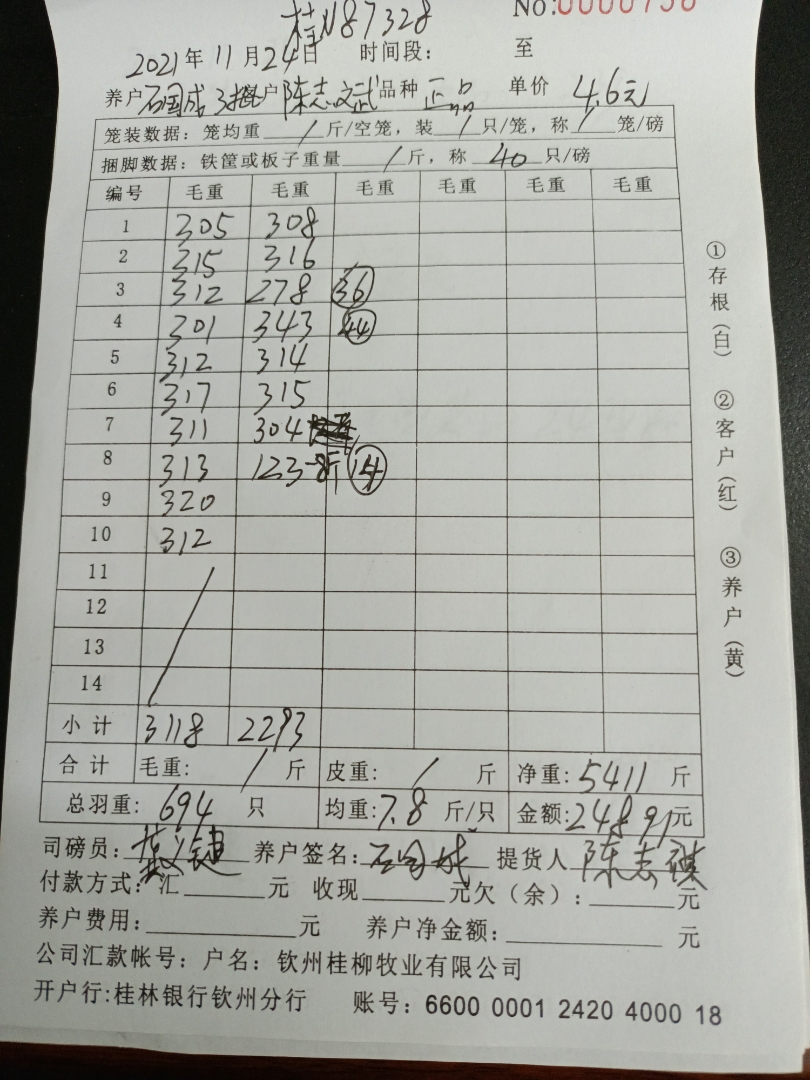 桂N87328
No:0000758
2021年11月24日 时间段: 至
养户 石国成 3批 客户 陈志斌 品种 正品 单价 4.6元
笼装数据:笼均重 / 斤/空笼,装 / 只/笼,称 / 笼/磅
捆脚数据:铁筐或板子重量 / 斤,称 40 只/磅
编号 毛重 毛重 毛重 毛重 毛重 毛重
1 305 308
2 315 316
3 312 278 36
4 301 343 44
5 312 314
6 317 315
7 311 304
8 313 123 -8斤 14
9 320
10 312
11
12
13
14
小计 3118 2293
合计 毛重: / 斤 皮重: / 斤 净重: 5411 斤
总羽重: 694 只 均重: 7.8 斤/只 金额: 24891元
司磅员: 养户签名: 石国成 提货人 陈志
付款方式: 汇 元 收现 元欠(余): 元
养户费用: 元 养户净金额: 元
公司汇款帐号: 户名: 钦州桂柳牧业有限公司
开户行:桂林银行钦州分行 账号: 6600 0001 2420 4000 18
①存根(白) ②客户(红) ③养户(黄)